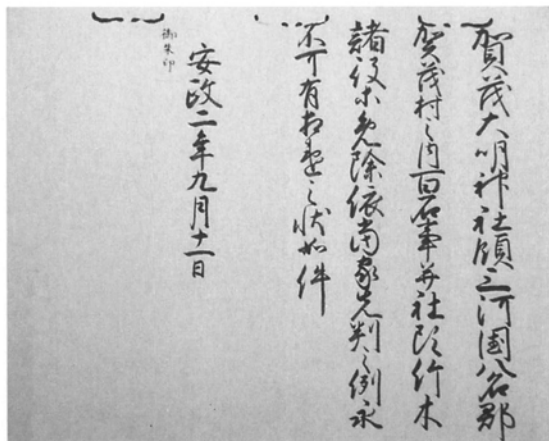 賀茂大明神社領三河国八名郡
賀茂村之内百石事并社頭竹木
諸役等免除依當家先判之例永
不可有相違之状如件
御朱印
安政二年九月十一日